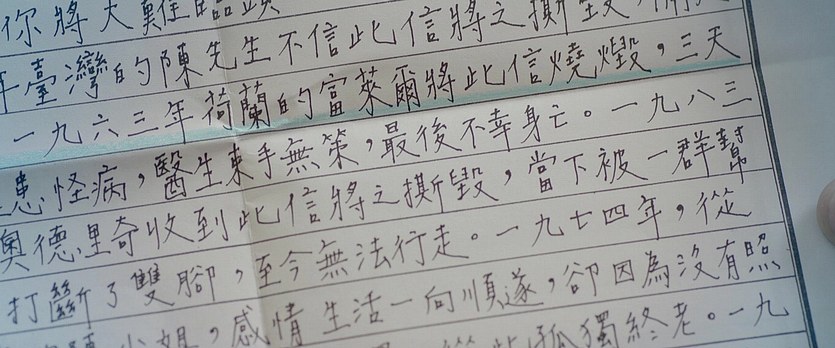 你將大難臨頭
年臺灣的陳先生不信此信將之撕毀,
一九六三年荷蘭的富萊爾將此信燒燬,三天
患怪病,醫生束手無策,最後不幸身亡。一九八三
奧德里奇收到此信將之撕毀,當下被一群幫
打斷了雙腳,至今無法行走。一九七四年,從
小姐,感情生活一向順遂,卻因為沒有照
孤獨終老。一九